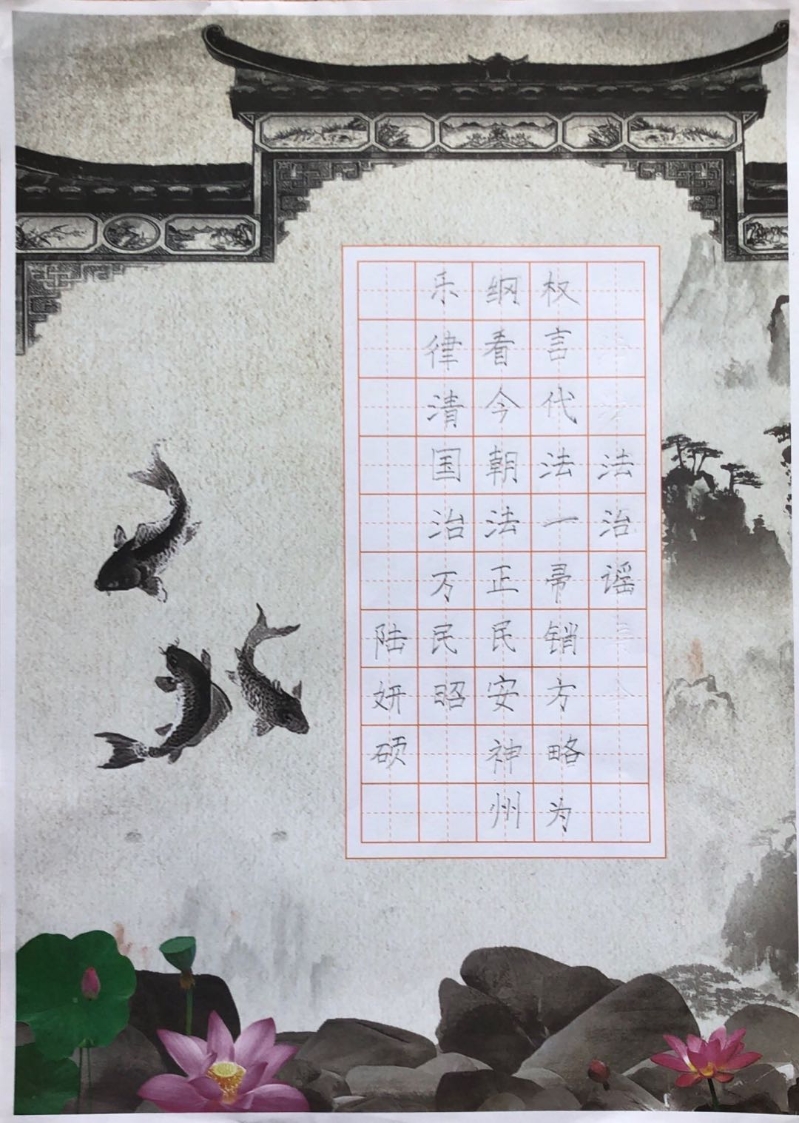 法治谣
权言代法一帚销方略为
纲看今朝法正民安神州
乐律清国治万民昭
陆妍硕